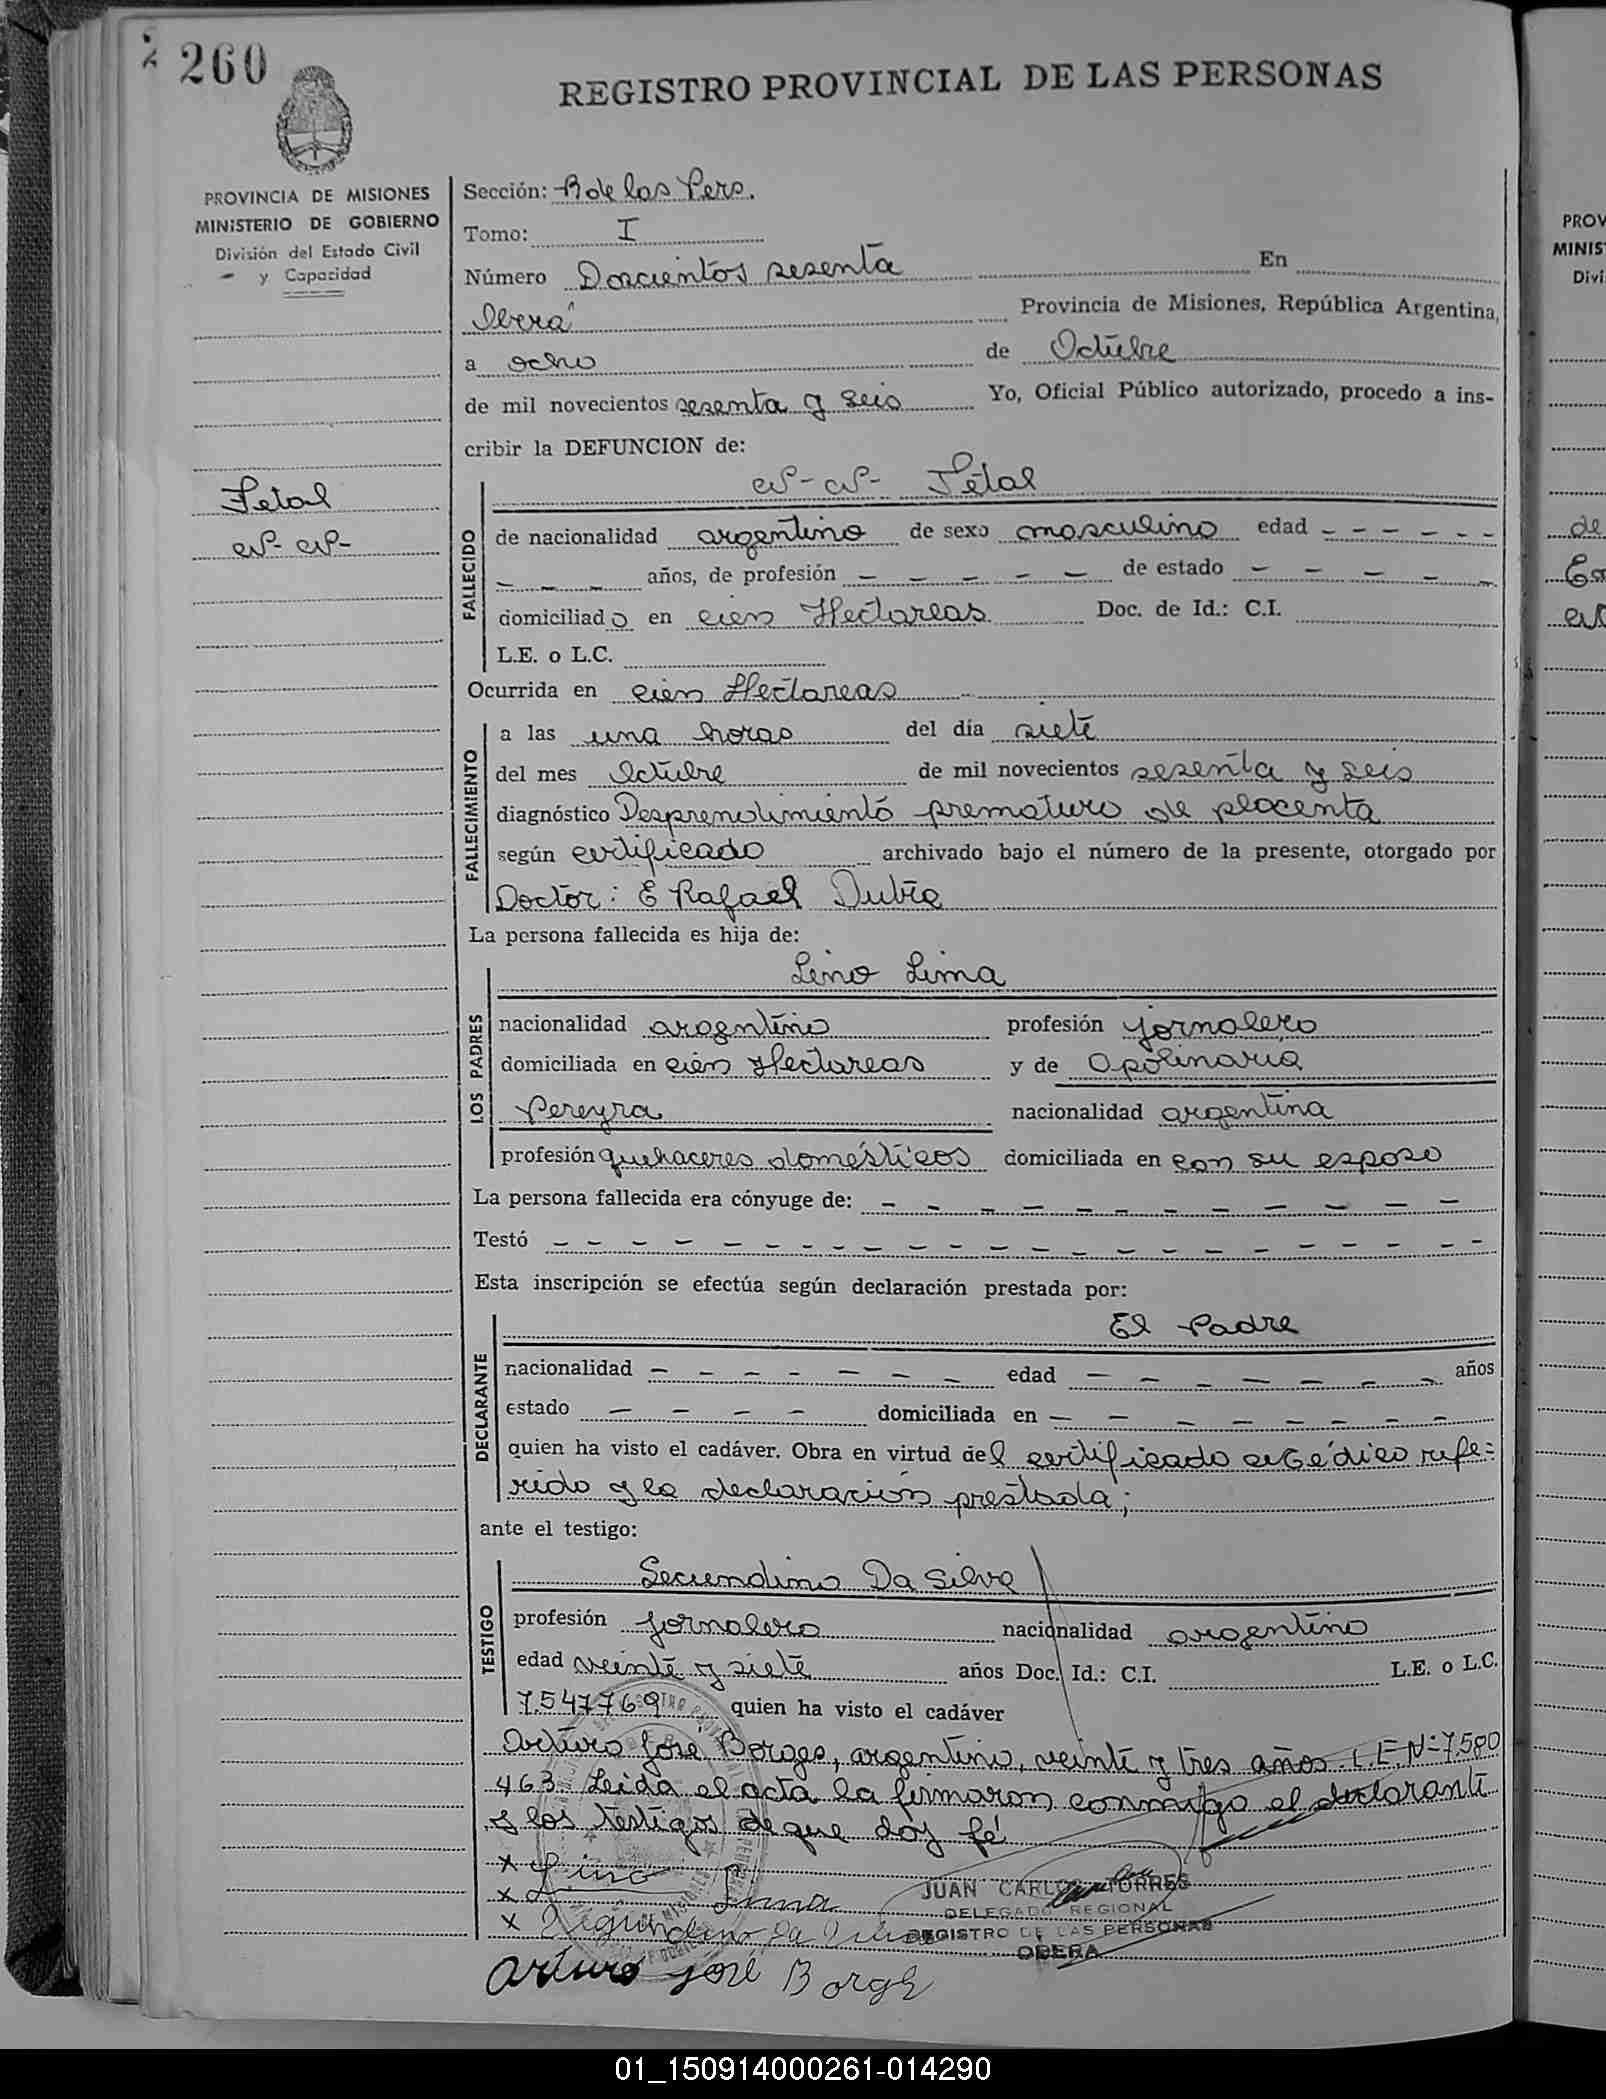 260
REGISTRO PROVINCIAL DE LAS PERSONAS
PROVINCIA DE MISIONES
MINISTERIO DE GOBIERNO
División del Estado Civil
y Capacidad
Sección: R de las Pers.
Tomo: I
Número Doscientos sesenta En
Oberá Provincia de Misiones, República Argentina,
a ocho de Octubre
de mil novecientos sesenta y seis Yo, Oficial Público autorizado, procedo a ins-
cribir la DEFUNCION de:
Fetal
N- N-
FALLECIDO
N- N- Fetal
de nacionalidad argentino de sexo masculino edad - - - - -
- - - años, de profesión - - - - - de estado - - - - -
domiciliado en cien Hectareas Doc. de Id.: C.I.
L.E. o L.C.
Ocurrida en cien Hectareas
FALLECIMIENTO
a las una horas del día siete
del mes Octubre de mil novecientos sesenta y seis
diagnóstico Desprendimiento prematuro de placenta
según certificado archivado bajo el número de la presente, otorgado por
Doctor: E Rafael
La persona fallecida es hija de:
LOS PADRES
Lino Lima
nacionalidad argentino profesión jornalero
domiciliada en cien Hectareas y de Apolinaria
Pereyra nacionalidad argentina
profesión quehaceres domésticos domiciliada en con su esposo
La persona fallecida era cónyuge de: - - - - - - - - - - -
Testó - - - - - - - - - - - - - - - - - - - -
Esta inscripción se efectúa según declaración prestada por:
DECLARANTE
El Padre
nacionalidad - - - - - - - edad - - - - - - - años
estado - - - - domiciliada en - - - - - - - -
quien ha visto el cadáver. Obra en virtud del certificado Médico refe=
rido y la declaración prestada;
ante el testigo:
TESTIGO
Secundino Da Silva
profesión jornalero nacionalidad argentino
edad veinte y siete años Doc. Id.: C.I. L.E. o L.C.
7.547769 quien ha visto el cadáver
Arturo José Borges, argentino, veinte y tres años. L.E. N= 7.580
463. Leida el acta la firmaron conmigo el declarante
y los testigos de que doy fé
x Lino
x Lima
x Segundino Da Silva
Arturo José Borge
JUAN CARLOS TORRES
DELEGADO REGIONAL
REGISTRO DE LAS PERSONAS
OBERA
PROV
MINIS
Divi
de
01_150914000261-014290